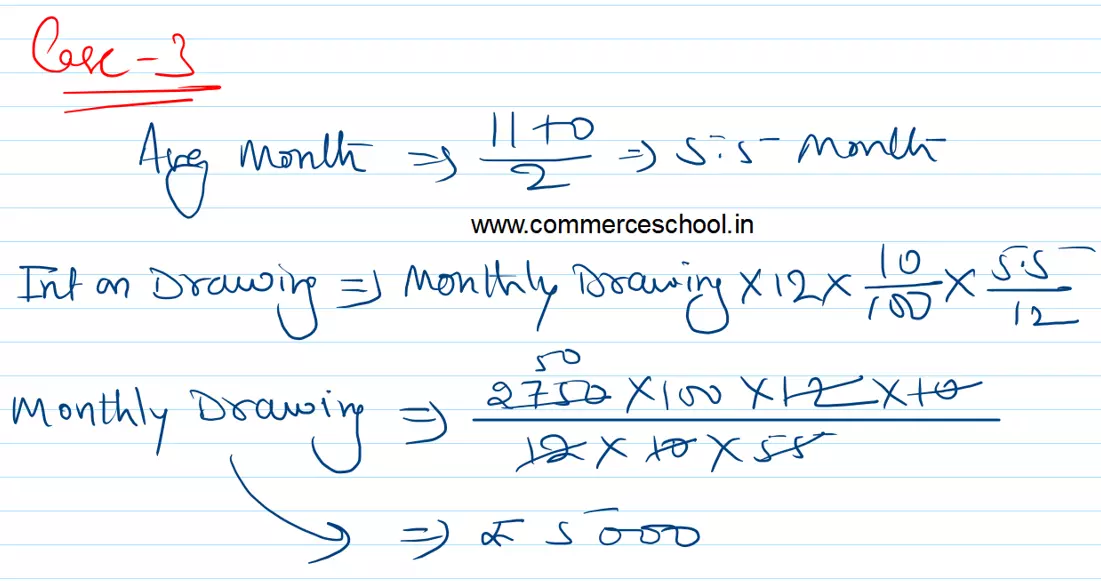 Case-3
Avg Month ⇒ 11+0/2 ⇒ 5.5 Month
www.commerceschool.in
Int on Drawing ⇒ Monthly Drawing × 12 × 10/100 × 5.5/12
50
Monthly Drawing ⇒ 2750 × 100 × 12 × 10 / 12 × 10 × 55
⇒ ₹ 5000